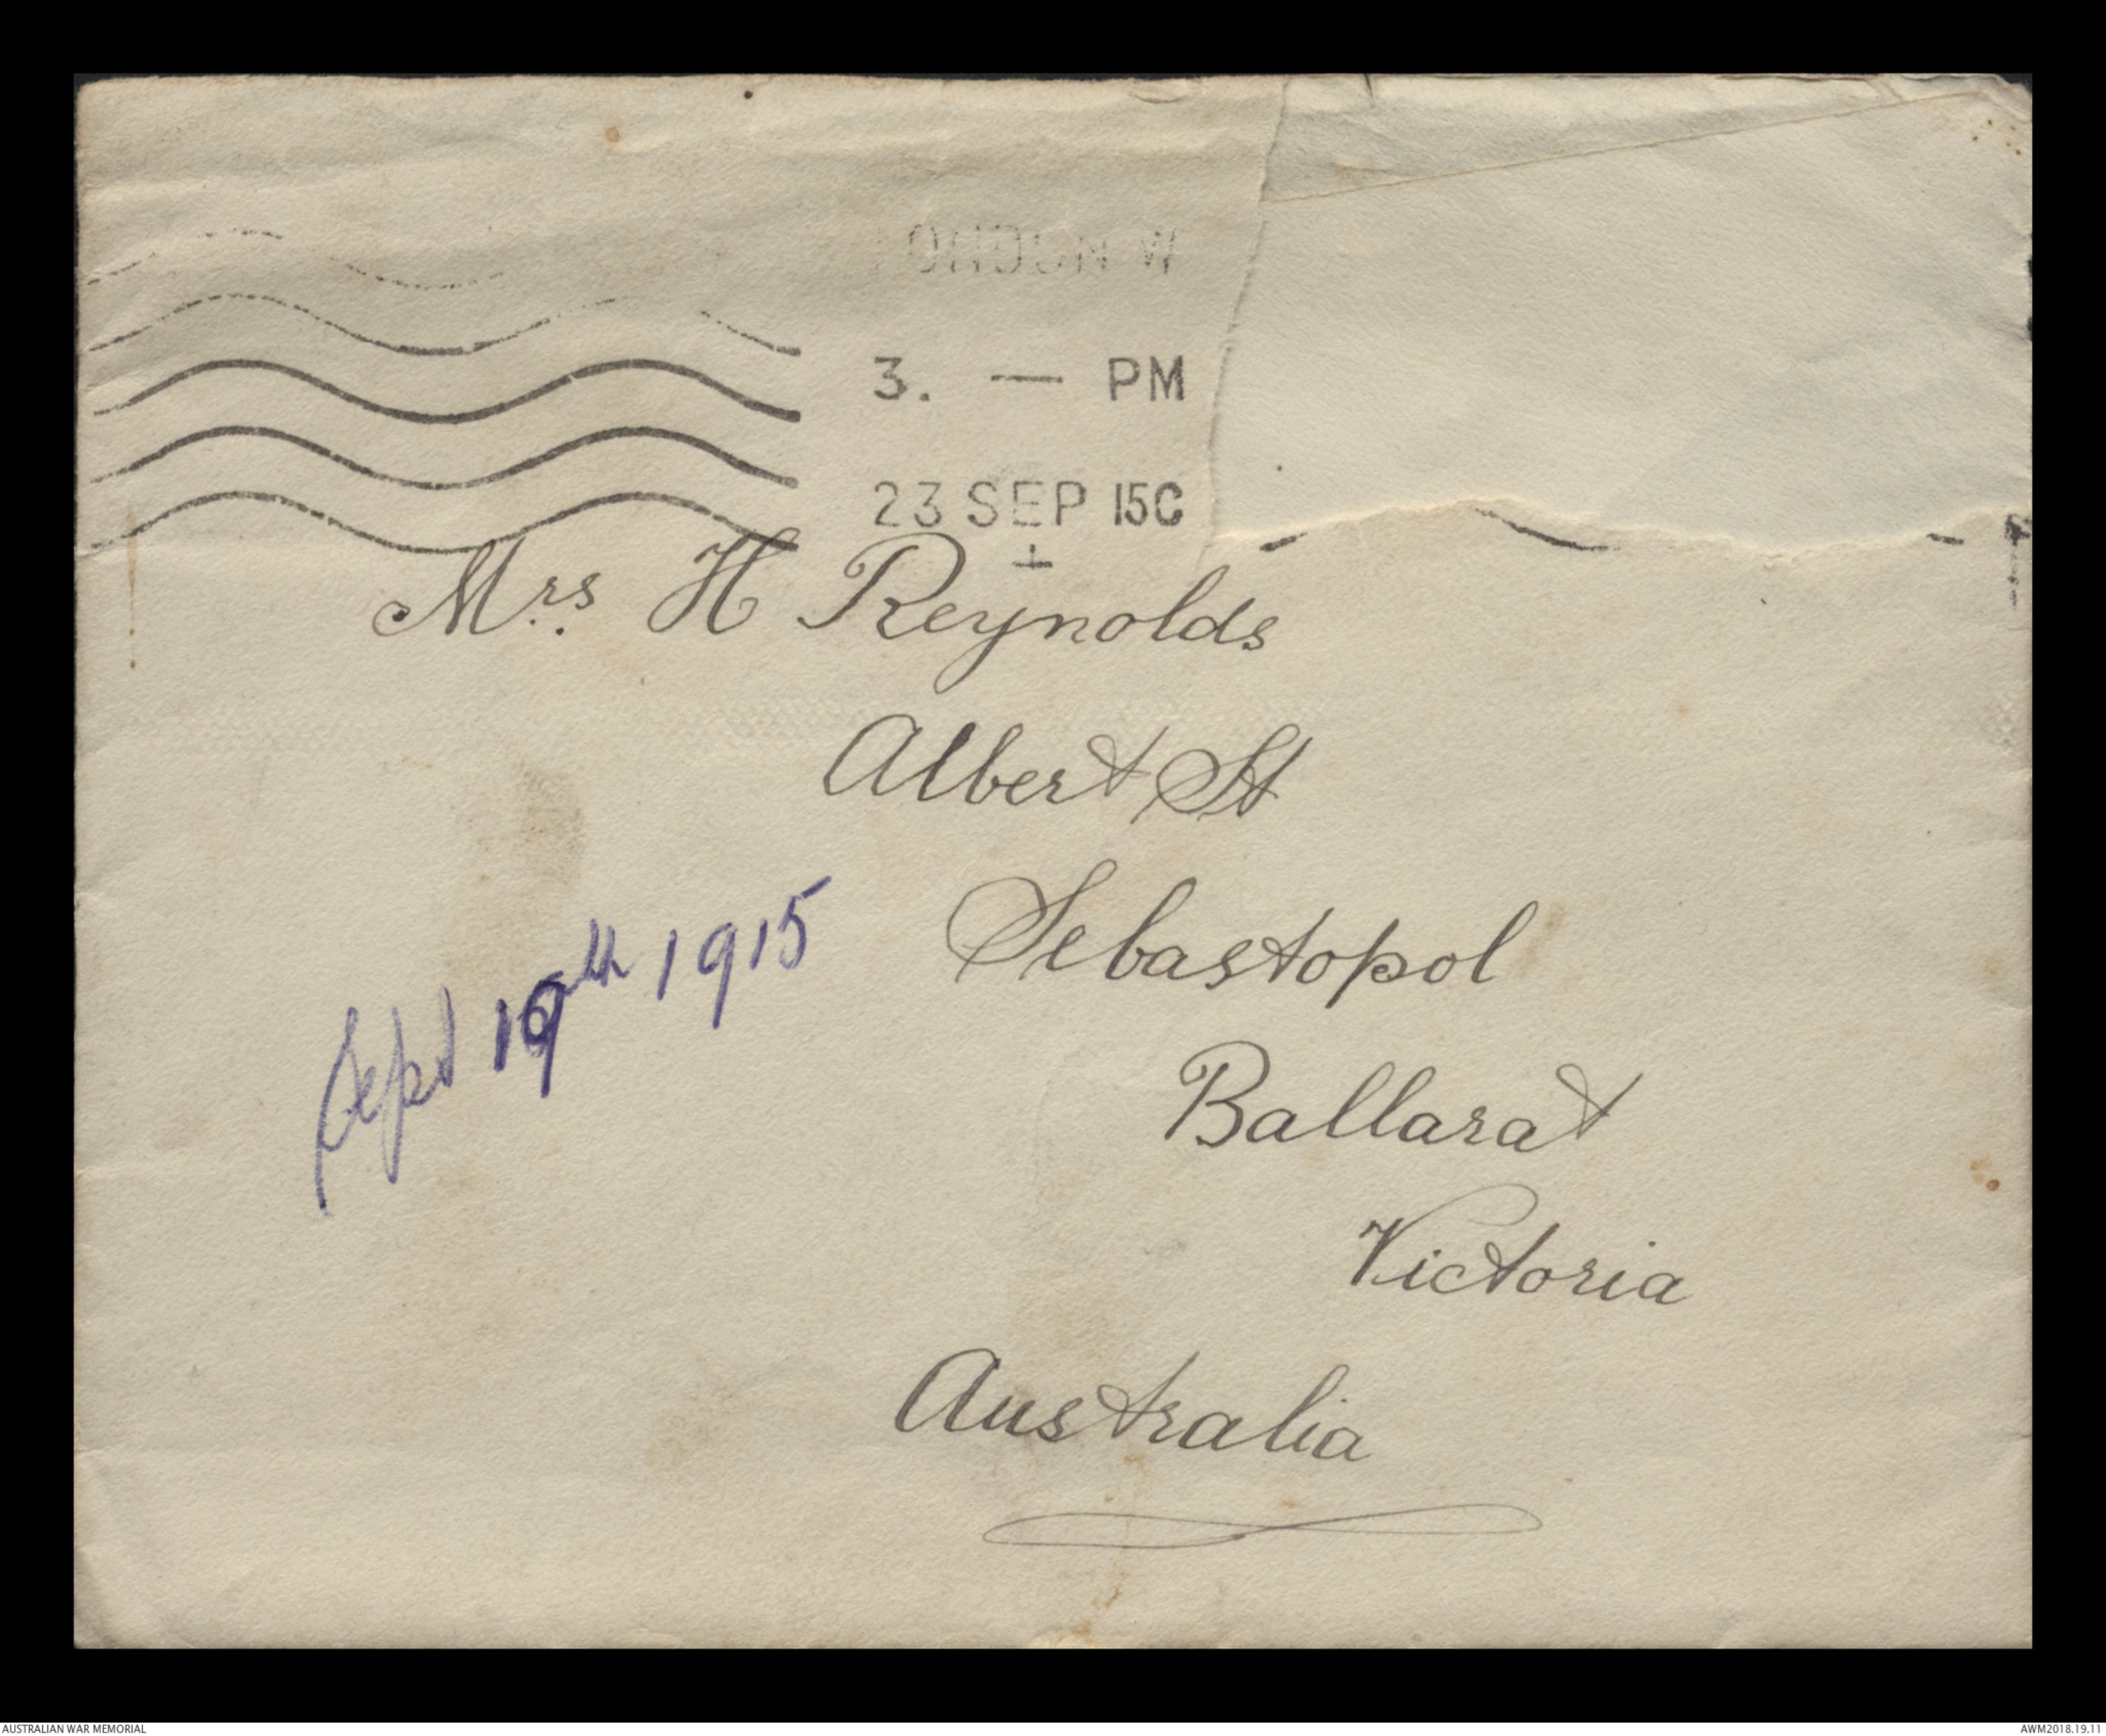 LONDON W
3. — PM
23 SEP 15C
Mrs. H Reynolds
Albert St
Sebastopol
Ballarat
Victoria
Australia
Sept 19th 1915
AUSTRALIAN WAR MEMORIAL
AWM2018.19.11